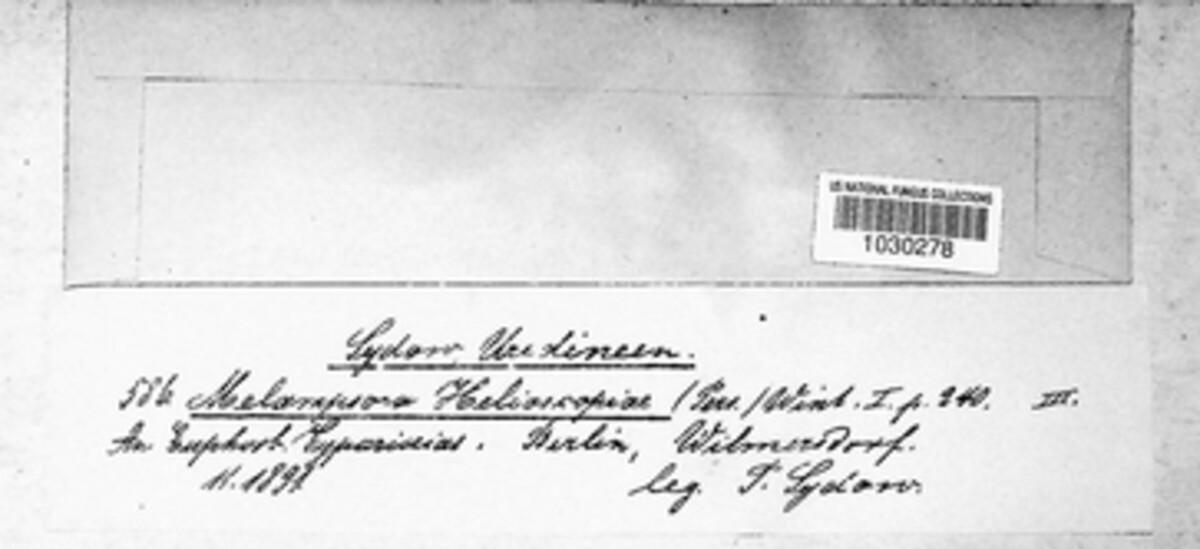 US NATIONAL FUNGUS COLLECTIONS
1030278
Sydow, Uredineen.
586 Melampsora Helioscopiae (Pers.) Wint. I. p. 240. III.
An Euphorb. Cyparissias. Berlin, Wilmersdorf.
leg. P. Sydow.